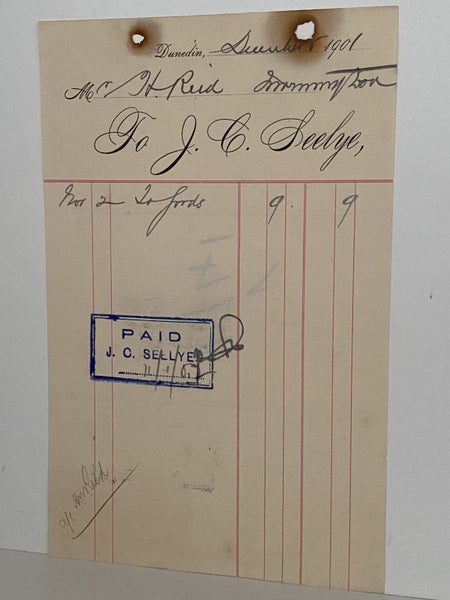 Dunedin, December 1901
Mr H. Reid Mornington
To J. C. Seelye,
Nov 2 To Goods 9 . 9
PAID
J. C. SELLYE
11/1/02
a/c Mr Reid